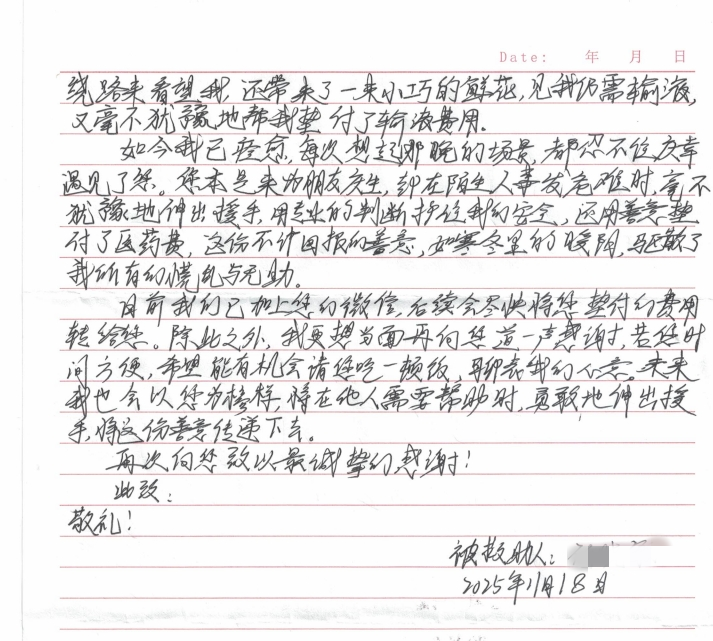 Date: 年 月 日
绕路来看望我,还带来了一束小巧的鲜花,见我仍需输液,
又毫不犹豫地帮我垫付了输液费用。
如今我已痊愈,每次想起那晚的场景,都忍不住庆幸
遇见了您。您本是来为朋友庆生,却在陌生人突发危难时,毫不
犹豫地伸出援手,用专业的判断护住我的安全,还用善意垫
付了医药费,这份不计回报的善意,如寒冬里的暖阳,驱散了
我所有的慌乱与无助。
目前我们已加上您的微信,后续会尽快将您垫付的费用
转给您。除此之外,我更想当面再向您道一声感谢,若您时
间方便,希望能有机会请您吃一顿饭,聊表我的心意。未来
我也会以您为榜样,将在他人需要帮助时,勇敢地伸出援
手,将这份善意传递下去。
再次向您致以最诚挚的感谢!
此致:
敬礼!
被救助人:
2025年11月18日